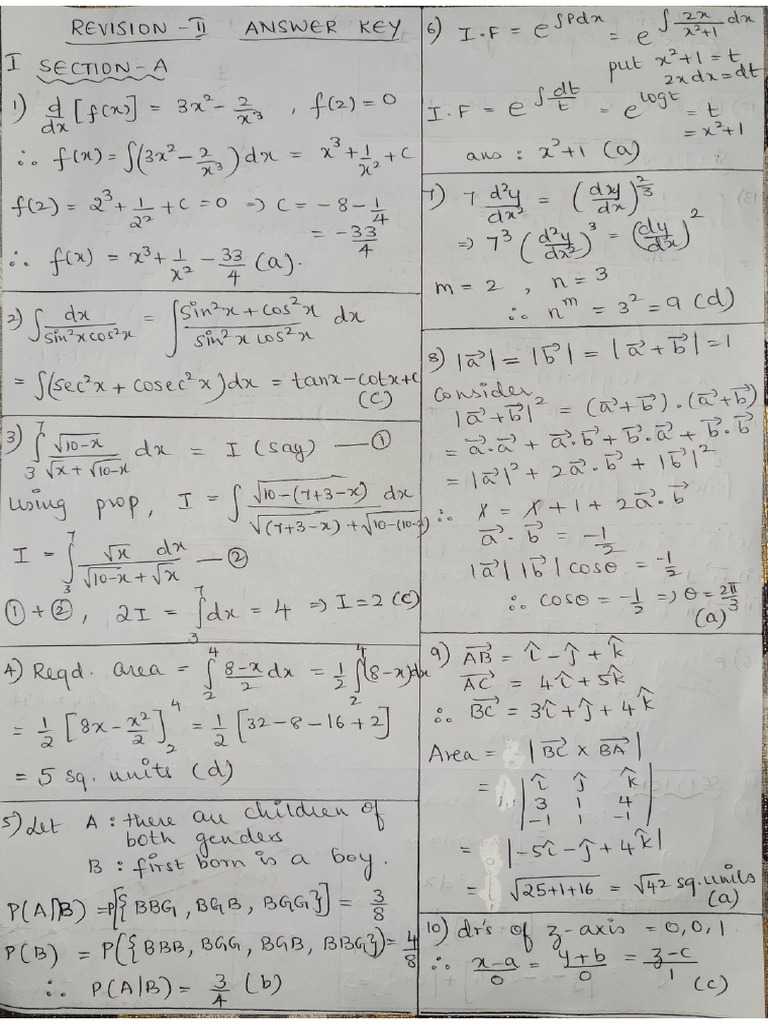 REVISION - II ANSWER KEY
I SECTION - A
1) d/dx [f(x)] = 3x² - 2/x³ , f(2) = 0
∴ f(x) = ∫(3x² - 2/x³) dx = x³ + 1/x² + c
f(2) = 2³ + 1/2² + c = 0 ⇒ c = -8 - 1/4
= -33/4
∴ f(x) = x³ + 1/x² - 33/4 (a).
2) ∫ dx/sin²x cos²x = ∫ sin²x + cos²x / sin²x cos²x dx
= ∫(sec²x + cosec²x) dx = tanx - cotx + c
(c)
3) ∫₃⁷ √10-x / √x + √10-x dx = I (say) — ①
Using prop, I = ∫ √10-(7+3-x) dx / √(7+3-x) + √10-(10-x)
I = ∫₃⁷ √x dx / √10-x + √x — ②
① + ②, 2I = ∫₃⁷ dx = 4 ⇒ I = 2 (c)
4) Reqd. area = ∫₂⁴ 8-x/2 dx = 1/2 ∫₂⁴ (8-x) dx
= 1/2 [8x - x²/2]₂⁴ = 1/2 [32 - 8 - 16 + 2]
= 5 sq. units (d)
5) Let A : there are children of
both genders
B : first born is a boy.
P(A∩B) = P[{BBG, BGB, BGG}] = 3/8
P(B) = P({BBB, BGG, BGB, BBG}) = 4/8
∴ P(A|B) = 3/4 (b)
6) I.F = e^∫Pdx = e^∫ 2x/x²+1 dx
put x²+1 = t
2x dx = dt
I.F = e^∫ dt/t = e^logt = t
= x²+1
ans : x²+1 (a)
7) 7 d²y/dx² = (dy/dx)^2/3
⇒ 7³ (d²y/dx²)³ = (dy/dx)²
m = 2 , n = 3
∴ n^m = 3² = 9 (d)
8) |a⃗| = |b⃗| = |a⃗ + b⃗| = 1
Consider
|a⃗ + b⃗|² = (a⃗ + b⃗) . (a⃗ + b⃗)
= a⃗ . a⃗ + a⃗ . b⃗ + b⃗ . a⃗ + b⃗ . b⃗
= |a⃗|² + 2 a⃗ . b⃗ + |b⃗|²
∴ 1 = 1 + 1 + 2 a⃗ . b⃗
a⃗ . b⃗ = -1/2
|a⃗| |b⃗| cosθ = -1/2
∴ cosθ = -1/2 ⇒ θ = 2π/3
(a)
9) AB⃗ = î - ĵ + k̂
AC⃗ = 4î + 5k̂
∴ BC⃗ = 3î + ĵ + 4k̂
Area = |BC⃗ × BA⃗|
= | î ĵ k̂
3 1 4
-1 1 -1 |
= |-5î - ĵ + 4k̂|
= √25+1+16 = √42 sq. units
(a)
10) dr's of z-axis = 0, 0, 1
∴ x-a/0 = y+b/0 = z-c/1
(c)